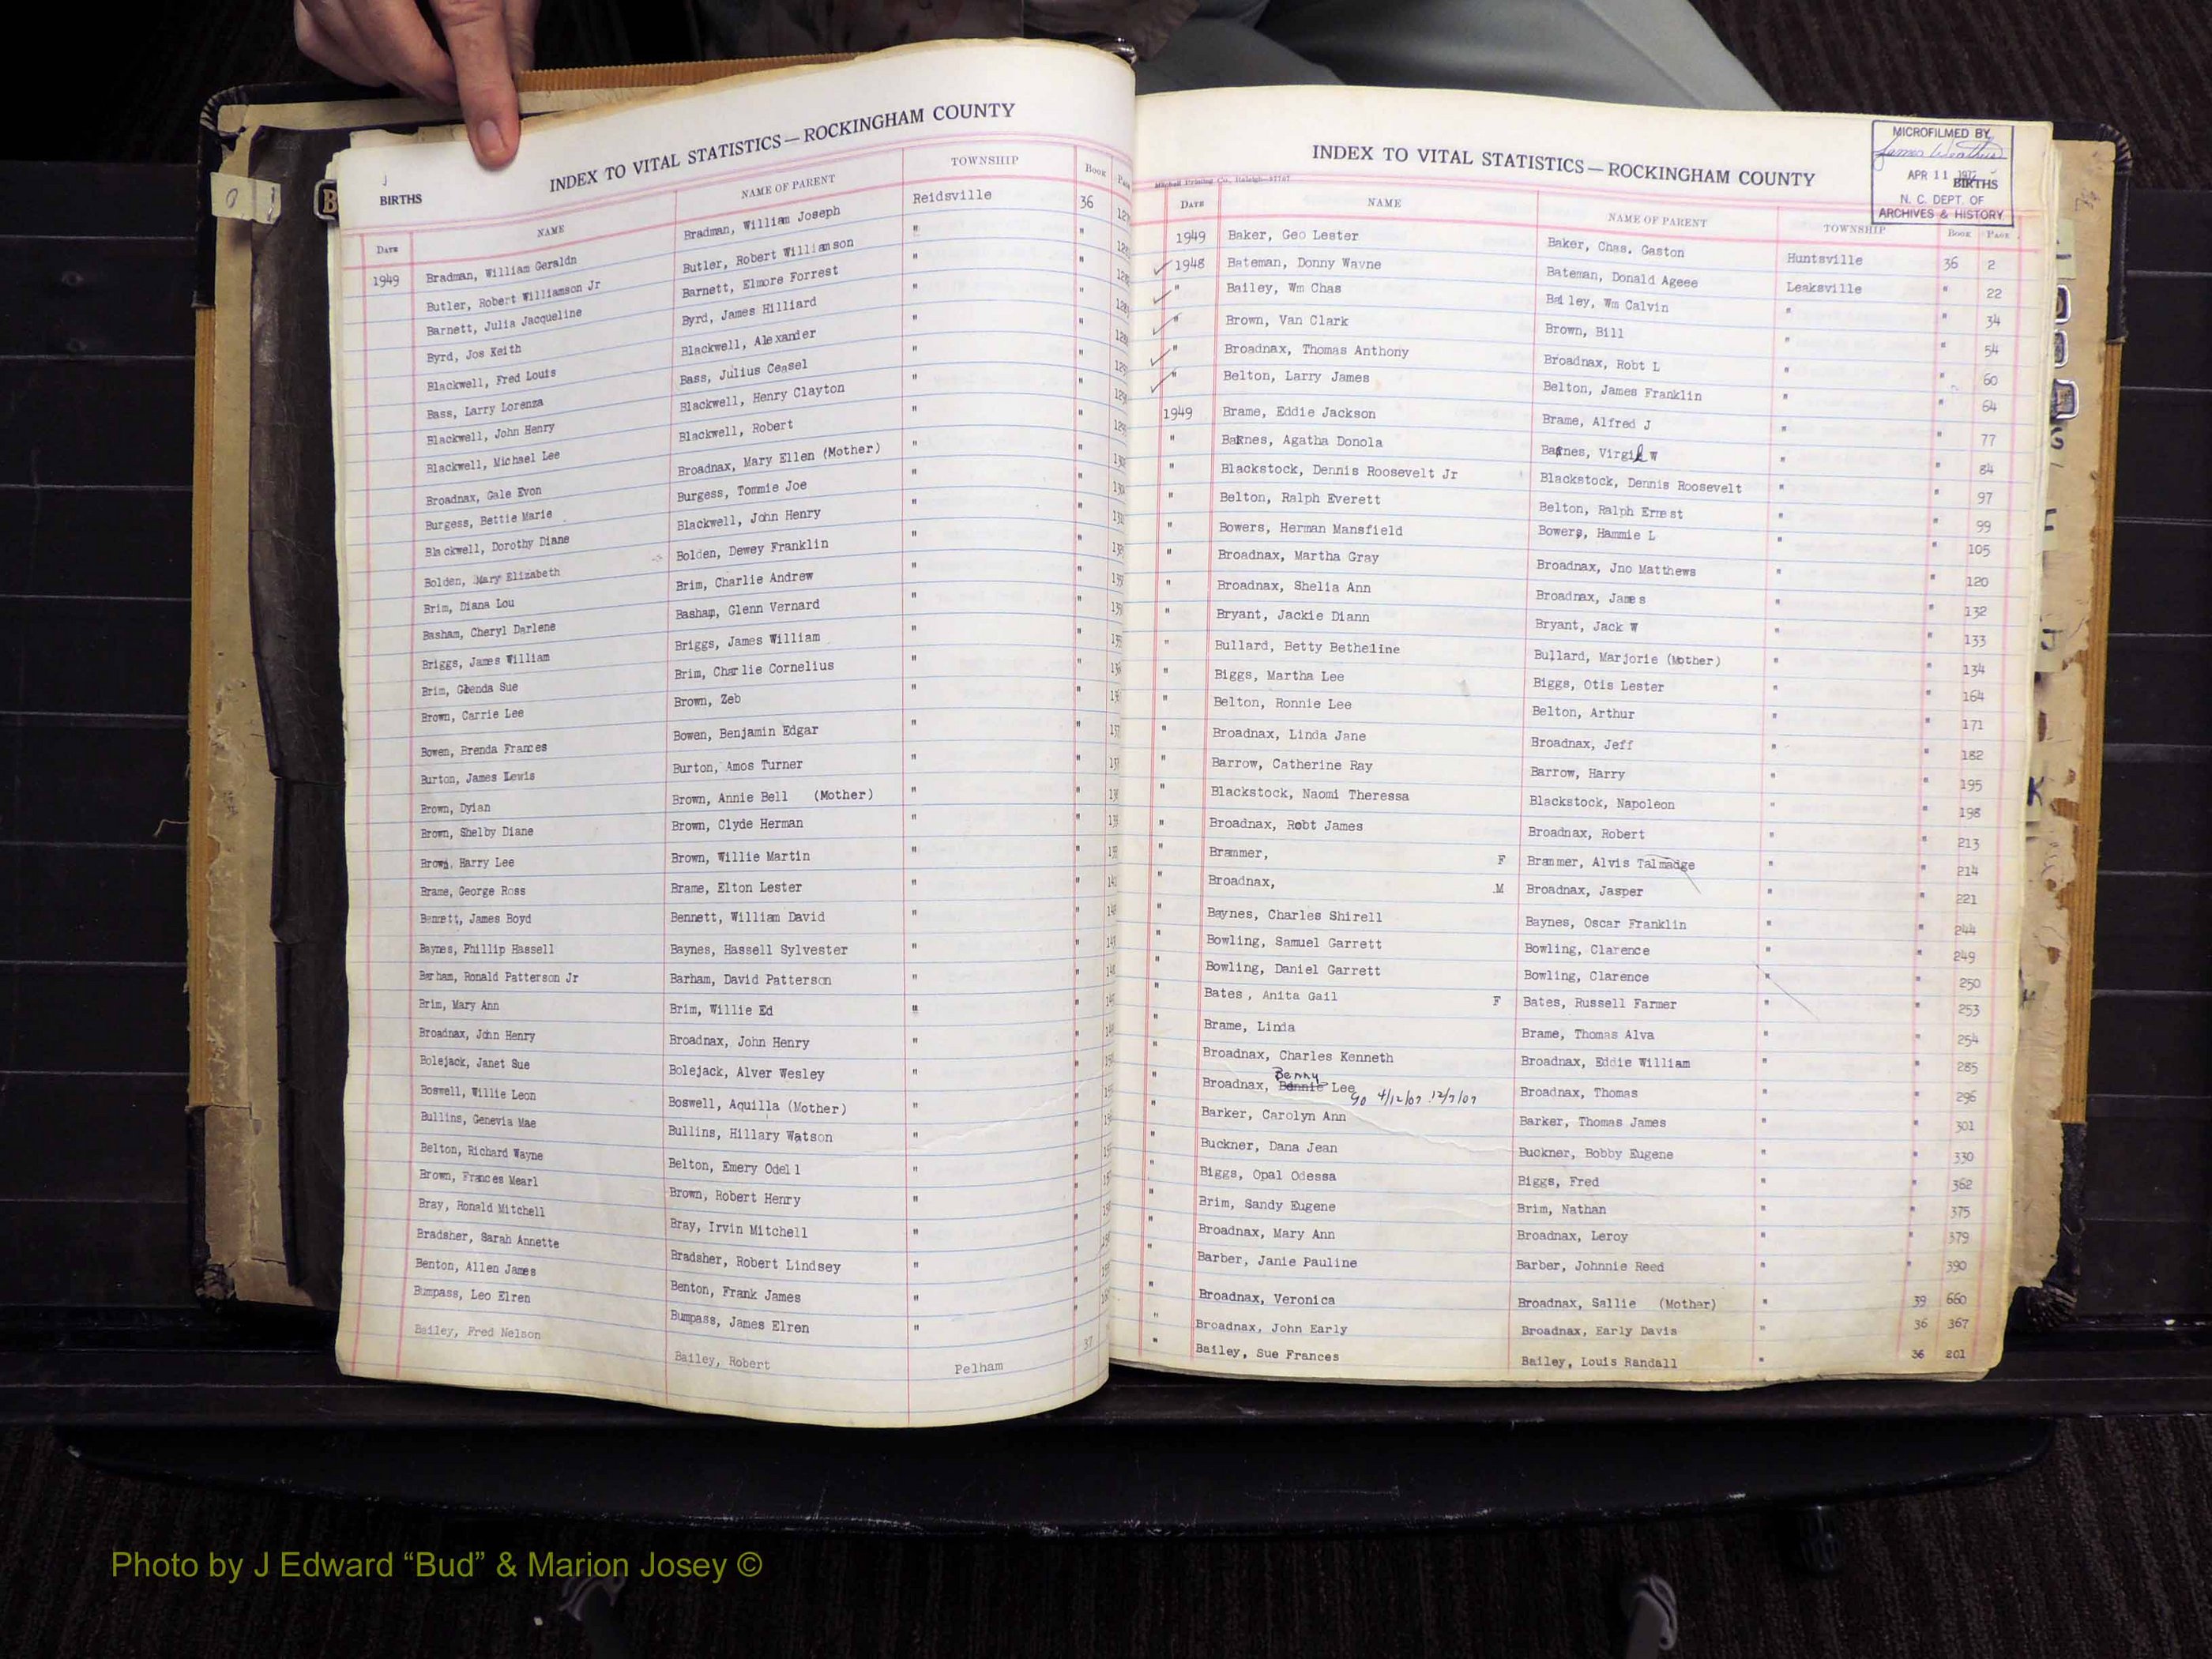 BIRTHS
INDEX TO VITAL STATISTICS—ROCKINGHAM COUNTY
DATE NAME NAME OF PARENT TOWNSHIP BOOK
1949 Bradman, William Geraldn Bradman, William Joseph Reidsville 36
Butler, Robert Williamson Jr Butler, Robert Williamson " "
Barnett, Julia Jacqueline Barnett, Elmore Forrest " "
Byrd, Jos Keith Byrd, James Hilliard " "
Blackwell, Fred Louis Blackwell, Alexander " "
Bass, Larry Lorenza Bass, Julius Ceasel " "
Blackwell, John Henry Blackwell, Henry Clayton " "
Blackwell, Michael Lee Blackwell, Robert " "
Broadnax, Gale Evon Broadnax, Mary Ellen (Mother) " "
Burgess, Bettie Marie Burgess, Tommie Joe " "
Blackwell, Dorothy Diane Blackwell, John Henry " "
Bolden, Mary Elizabeth Bolden, Dewey Franklin " "
Brim, Diana Lou Brim, Charlie Andrew " "
Basham, Cheryl Darlene Basham, Glenn Vernard " "
Briggs, James William Briggs, James William " "
Brim, Glenda Sue Brim, Charlie Cornelius " "
Brown, Carrie Lee Brown, Zeb " "
Bowen, Brenda Frances Bowen, Benjamin Edgar " "
Burton, James Lewis Burton, Amos Turner " "
Brown, Dyian Brown, Annie Bell (Mother) " "
Brown, Shelby Diane Brown, Clyde Herman " "
Brown, Harry Lee Brown, Willie Martin " "
Brame, George Ross Brame, Elton Lester " "
Bennett, James Boyd Bennett, William David " "
Baynes, Phillip Hassell Baynes, Hassell Sylvester " "
Barham, Ronald Patterson Jr Barham, David Patterson " "
Brim, Mary Ann Brim, Willie Ed " "
Broadnax, John Henry Broadnax, John Henry " "
Bolejack, Janet Sue Bolejack, Alver Wesley " "
Boswell, Willie Leon Boswell, Aquilla (Mother) " "
Bullins, Genevia Mae Bullins, Hillary Watson " "
Belton, Richard Wayne Belton, Emery Odell " "
Brown, Frances Mearl Brown, Robert Henry " "
Bray, Ronald Mitchell Bray, Irvin Mitchell " "
Bradsher, Sarah Annette Bradsher, Robert Lindsey " "
Benton, Allen James Benton, Frank James " "
Bumpass, Leo Elren Bumpass, James Elren " "
Bailey, Fred Nelson Bailey, Robert Pelham 37
INDEX TO VITAL STATISTICS—ROCKINGHAM COUNTY
MICROFILMED BY
APR 11 1972
BIRTHS
N. C. DEPT. OF
ARCHIVES & HISTORY
Mitchell Printing Co., Raleigh
DATE NAME NAME OF PARENT TOWNSHIP BOOK PAGE
1949 Baker, Geo Lester Baker, Chas. Gaston Huntsville 36 2
1948 Bateman, Donny Wayne Bateman, Donald Ageee Leaksville " 22
" Bailey, Wm Chas Bailey, Wm Calvin " " 34
" Brown, Van Clark Brown, Bill " " 54
" Broadnax, Thomas Anthony Broadnax, Robt L " " 60
" Belton, Larry James Belton, James Franklin " " 64
1949 Brame, Eddie Jackson Brame, Alfred J " " 77
" Barnes, Agatha Donola Barnes, Virgil W " " 84
" Blackstock, Dennis Roosevelt Jr Blackstock, Dennis Roosevelt " " 97
" Belton, Ralph Everett Belton, Ralph Ernest " " 99
" Bowers, Herman Mansfield Bowers, Hammie L " " 105
" Broadnax, Martha Gray Broadnax, Jno Matthews " " 120
" Broadnax, Shelia Ann Broadnax, James " " 132
" Bryant, Jackie Diann Bryant, Jack W " " 133
" Bullard, Betty Betheline Bullard, Marjorie (Mother) " " 134
" Biggs, Martha Lee Biggs, Otis Lester " " 164
" Belton, Ronnie Lee Belton, Arthur " " 171
" Broadnax, Linda Jane Broadnax, Jeff " " 182
" Barrow, Catherine Ray Barrow, Harry " " 195
" Blackstock, Naomi Theressa Blackstock, Napoleon " " 198
" Broadnax, Robt James Broadnax, Robert " " 213
" Brammer, F Brammer, Alvis Talmadge " " 214
" Broadnax, M Broadnax, Jasper " " 221
" Baynes, Charles Shirell Baynes, Oscar Franklin " " 244
" Bowling, Samuel Garrett Bowling, Clarence " " 249
" Bowling, Daniel Garrett Bowling, Clarence " " 250
" Bates, Anita Gail F Bates, Russell Farmer " " 253
" Brame, Linda Brame, Thomas Alva " " 254
" Broadnax, Charles Kenneth Broadnax, Eddie William " " 285
Benny
" Broadnax, Bennie Lee 4/12/07 12/7/07 Broadnax, Thomas " " 296
" Barker, Carolyn Ann Barker, Thomas James " " 301
" Buckner, Dana Jean Buckner, Bobby Eugene " " 330
" Biggs, Opal Odessa Biggs, Fred " " 362
" Brim, Sandy Eugene Brim, Nathan " " 375
" Broadnax, Mary Ann Broadnax, Leroy " " 379
" Barber, Janie Pauline Barber, Johnnie Reed " " 390
" Broadnax, Veronica Broadnax, Sallie (Mother) " 39 660
" Broadnax, John Early Broadnax, Early Davis " 36 367
" Bailey, Sue Frances Bailey, Louis Randall " 36 201
Photo by J Edward “Bud” & Marion Josey ©